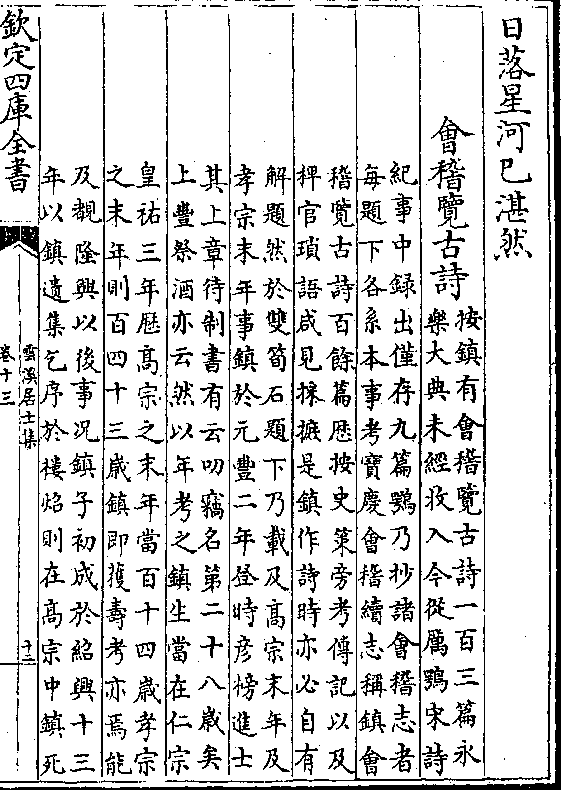 日落星河已湛然
會稽覽古詩
按鎮有會稽覽古詩一百三篇永
樂大典未經收入今從厲鶚宋詩
紀事中録出僅存九篇鶚乃抄諸會稽志者
每題下各系本事考寶慶會稽續志稱鎮會
稽覽古詩百餘篇歴按史䇿旁考傳記以及
稗官瑣語咸見採摭是鎮作詩時亦必自有
解題然於雙筍石題下乃載及髙宗末年及
孝宗末年事鎮於元豐二年登時彦榜進士
其上章待制書有云叨竊名第二十八歲矣
上豐祭酒亦云然以年考之鎮生當在仁宗
皇祐三年歴髙宗之末年當百十四歲孝宗
之末年則百四十三歲鎮即獲壽考亦焉能
及覩隆興以後事况鎮子初成於紹興十三
年以鎮遺集乞序於樓炤則在髙宗中鎮死
欽定四庫全書
雲溪居士集
卷十三
十二